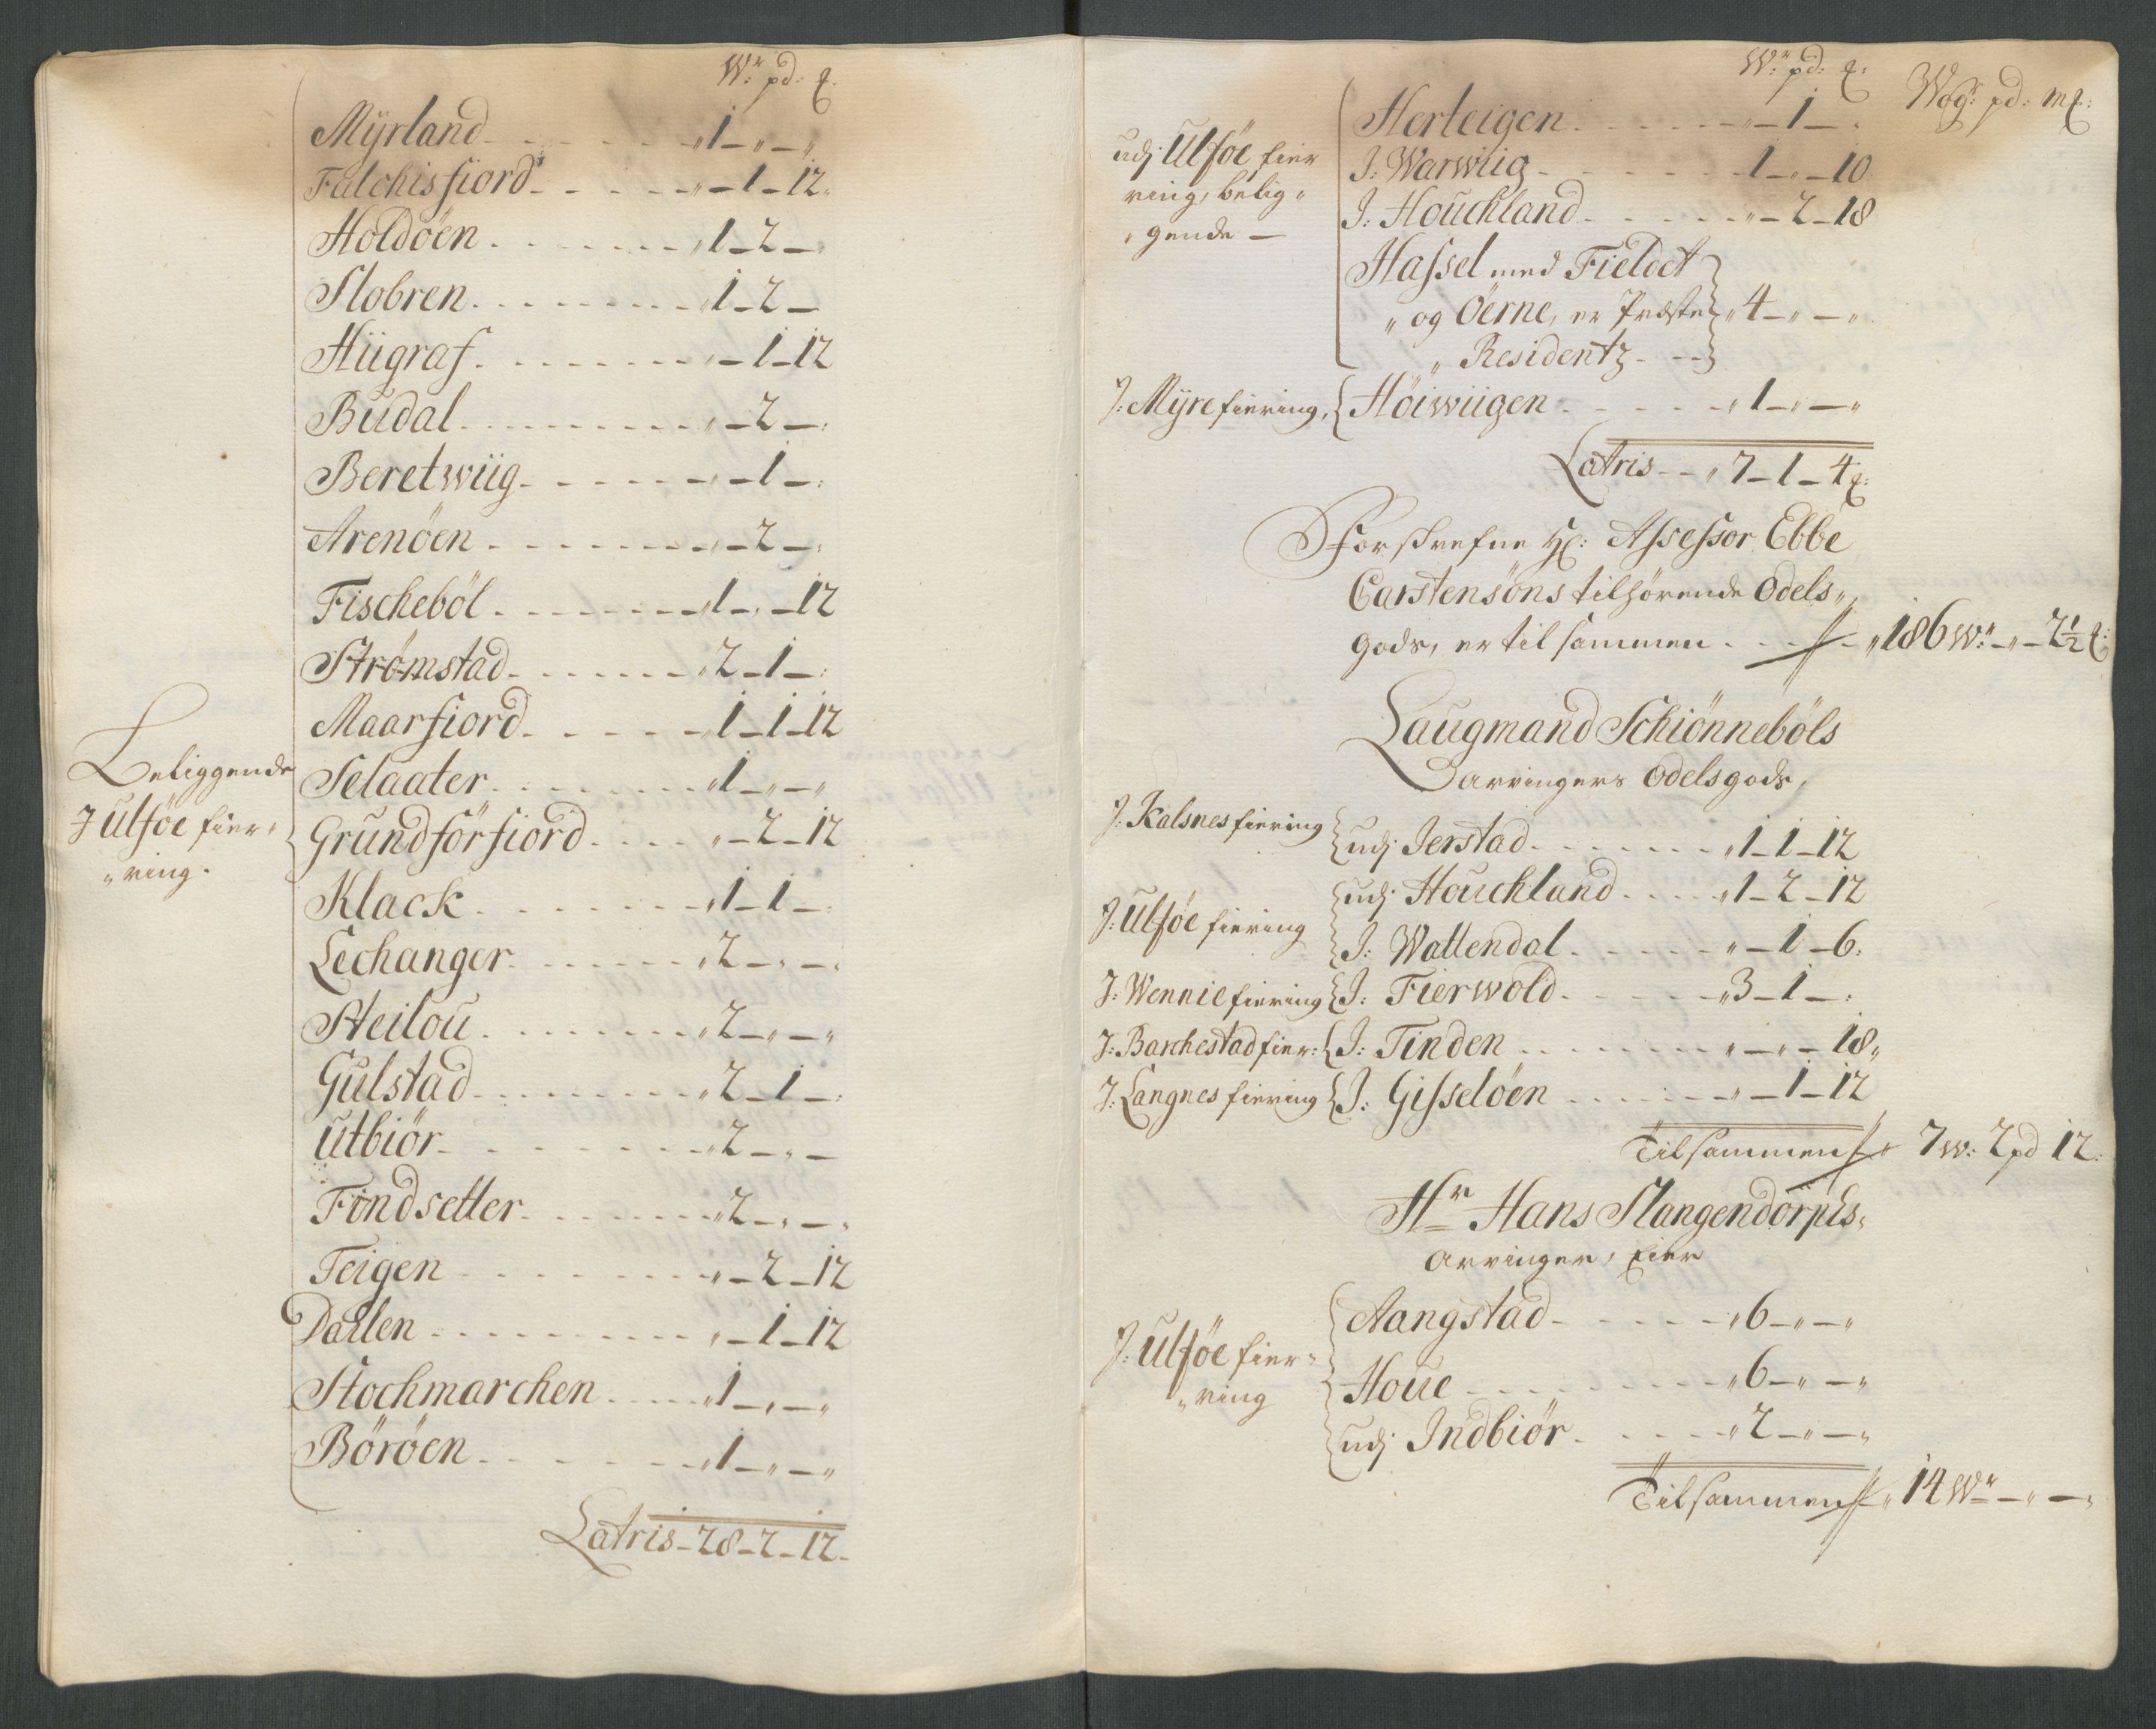 Wr: pd: ℔.
Myrland - - - - - - „ 1 - „ - „
Falchisfiord - - - - - „ - 1 - 12.
Holdöen - - - - - - „ 1 - 2 - „
Slobren - - - - - - - „ 1 - 2 -
Hügraf - - - - - - „ - 1 - 12
Büdal - - - - - - - „ - 2 - „
Beretwiig - - - - - - „ - 1 - „
Arenöen - - - - - - „ - 2 - „
Fischeböl - - - - - - „ 1 - „ - 12
Strømstad - - - - - - „ 2 - 1 - „
Maarfiord - - - - - „ 1 - 1 - 12
Beliggende
J Ulföe fier„
„ring.
Selaater - - - - - - „ 1 - „ - „
Grundförfiord - - - - „ - 2 - 12
Klack - - - - - - - „ 1 - 1 - „
Lechanger - - - - - - „ 2 - „ - „
Steilou - - - - - - - „ 2 - „ - „
Gulstad - - - - - - - „ 2 - 1 - „
Utbiör - - - - - - - „ 2 - „ -
Findsetter - - - - - - „ 2 - „ - „
Teigen - - - - - - - „ - 2 - 12
Dahlen - - - - - - - „ - 1 - 12
Stochmarchen - - - - „ 1 - „ - „
Böröen - - - - - - - „ 1 - „ - „
Latris - 28 - 2 - 12 -
Wr: pd: ℔: Wogr: pd: m℔:
udj Ulföe fier
ring, belig„
„gende -
Herleigen - - - - - - „ - 1 - „
J: Warwiig - - - - - - 1 - „ - 10
J: Houchland - - - - - „ - 2 - 18
Hassel med Fieldet
„ og Öerne, er Præste „ 4 - „ - „
„ Residentz - - -
J: Myre fiering, Höiwiigen - - - - - „ 1 - „ - „
Latris - - „ 7 - 1 - 4 ℔:
Forschrefne Hr: Assessor Ebbe
Carstensöns tilhörende Odels„
gods, er tilsammen - - - „ 186 Wr: - „ - 2½ ℔:
Laugmand Schiönneböls
arvingers Odelsgods,
J: Kalsnes fiering udj Jerstad - - - - - - „ 1 - 1 - 12
J: Ulföe fiering udj Houchland - - - - „ 1 - 2 - 12
J: Wattendal - - - - - „ - 1 - 6:
J: Wennie fiering J: Fierwold - - - - - „ 3 - 1 - „
J: Barchestad fier: J: Tinden - - - - - - „ - „ - 18„
J: Langnes fiering J: Gisselöen - - - - - „ - 1 - 12
Tilsammen „ 7 w: 2 pd 12:
Hr Hans Slangendorphs„
arvinger, Eier
J: Ulföe fier„
„ring
Aangstad - - - - - „ 6 - „ - „
Houe - - - - - - - „ 6 - „ - „
udj Indbiör - - - - - „ 2 - „ - „
Tilsammen „ 14 Wr - „ - „